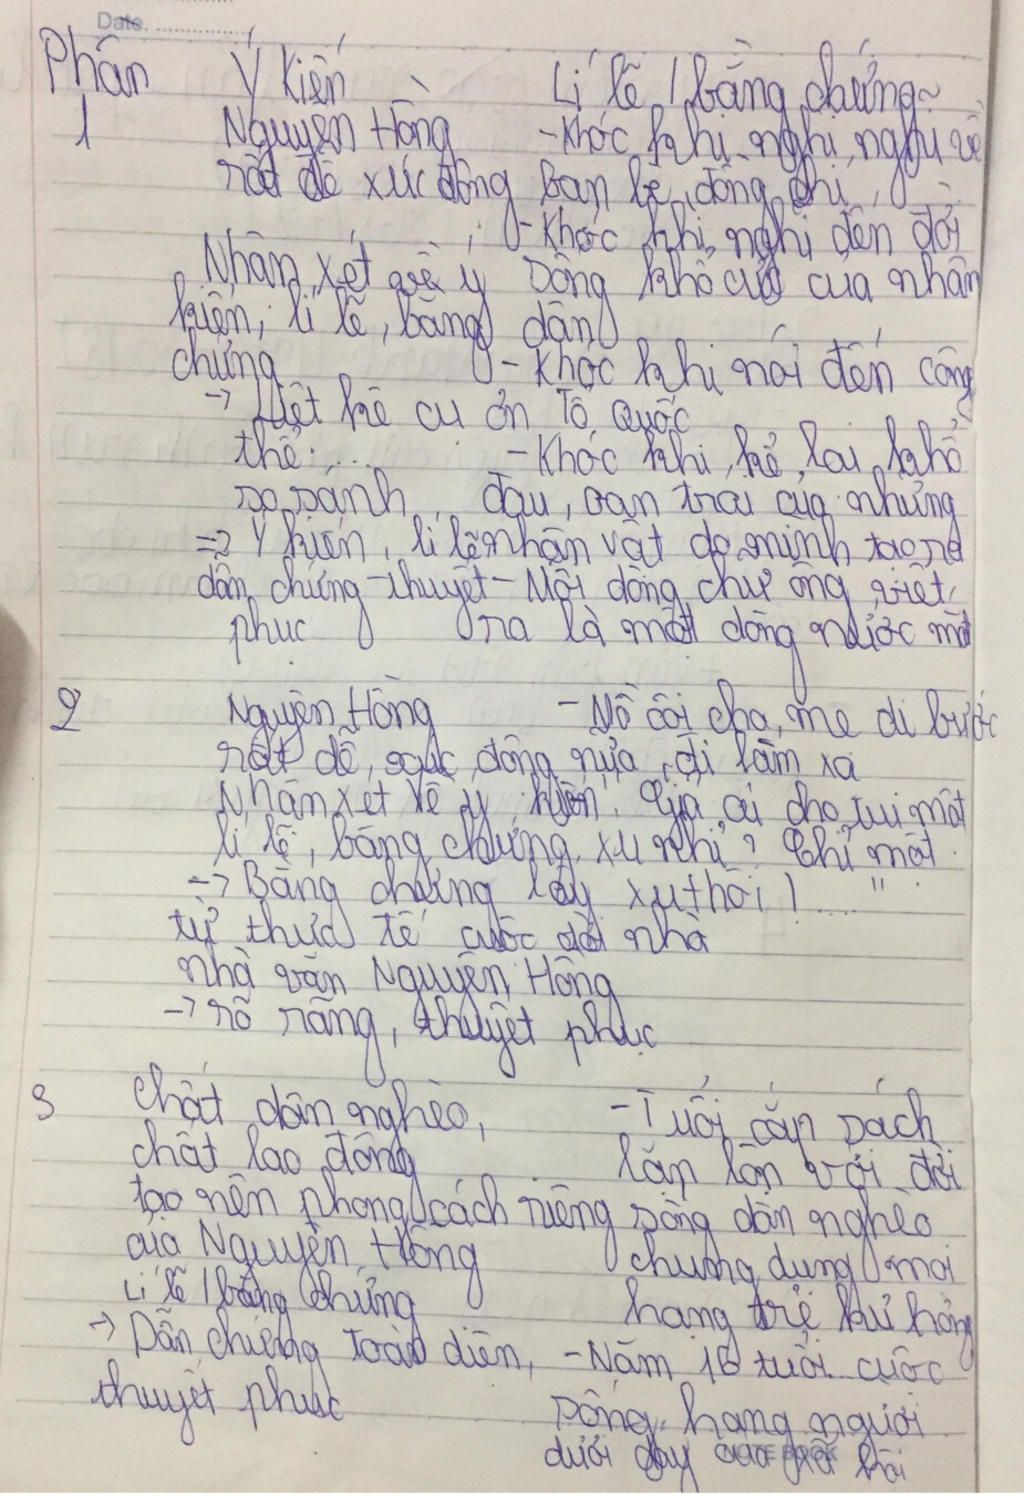 Date.
Phần Ý Kiến Lí lẽ / bằng chứng
1 Nguyên Hồng - Khóc khi nghĩ, nghĩ về
rất dễ xúc động bạn bè, đồng chí,
- Khóc khi nghĩ đến đời
Nhận xét về ý sống khổ cực của nhân
kiến, lí lẽ, bằng dân
chứng - Khóc khi nói đến công
-> Liệt kê cụ ơn Tổ Quốc
thể..... - Khóc khi, kể lại khổ
so sánh đau, oan trái của những
=> Ý kiến, lí lẽ nhân vật do mình tạo ra
dẫn chứng thuyết - Mỗi dòng chữ ông viết
phục ra là một dòng nước mắt
2 Nguyên Hồng - Mồ côi cha, mẹ đi bước
rất dễ, xúc động nữa, đi làm xa
Nhận xét về ý kiến "Giá ai cho tui một
lí lẽ, bằng chứng xu nhỉ? Chỉ một
-> Bằng chứng lấy xu thôi!....."
từ thực tế cuộc đời nhà
nhà văn Nguyên Hồng
-> rõ ràng, thuyết phục
3 Chất dân nghèo, - Tuổi cắp sách
chất lao động lăn lộn với đời
tạo nên phong cách riêng sống dân nghèo
của Nguyên Hồng chung đụng mọi
Lí lẽ / bằng chứng hạng trẻ hư hỏng
-> Dẫn chứng toàn diện, - Năm 16 tuổi cuộc
thuyết phục sống hạng người
dưới đáy của xã hội